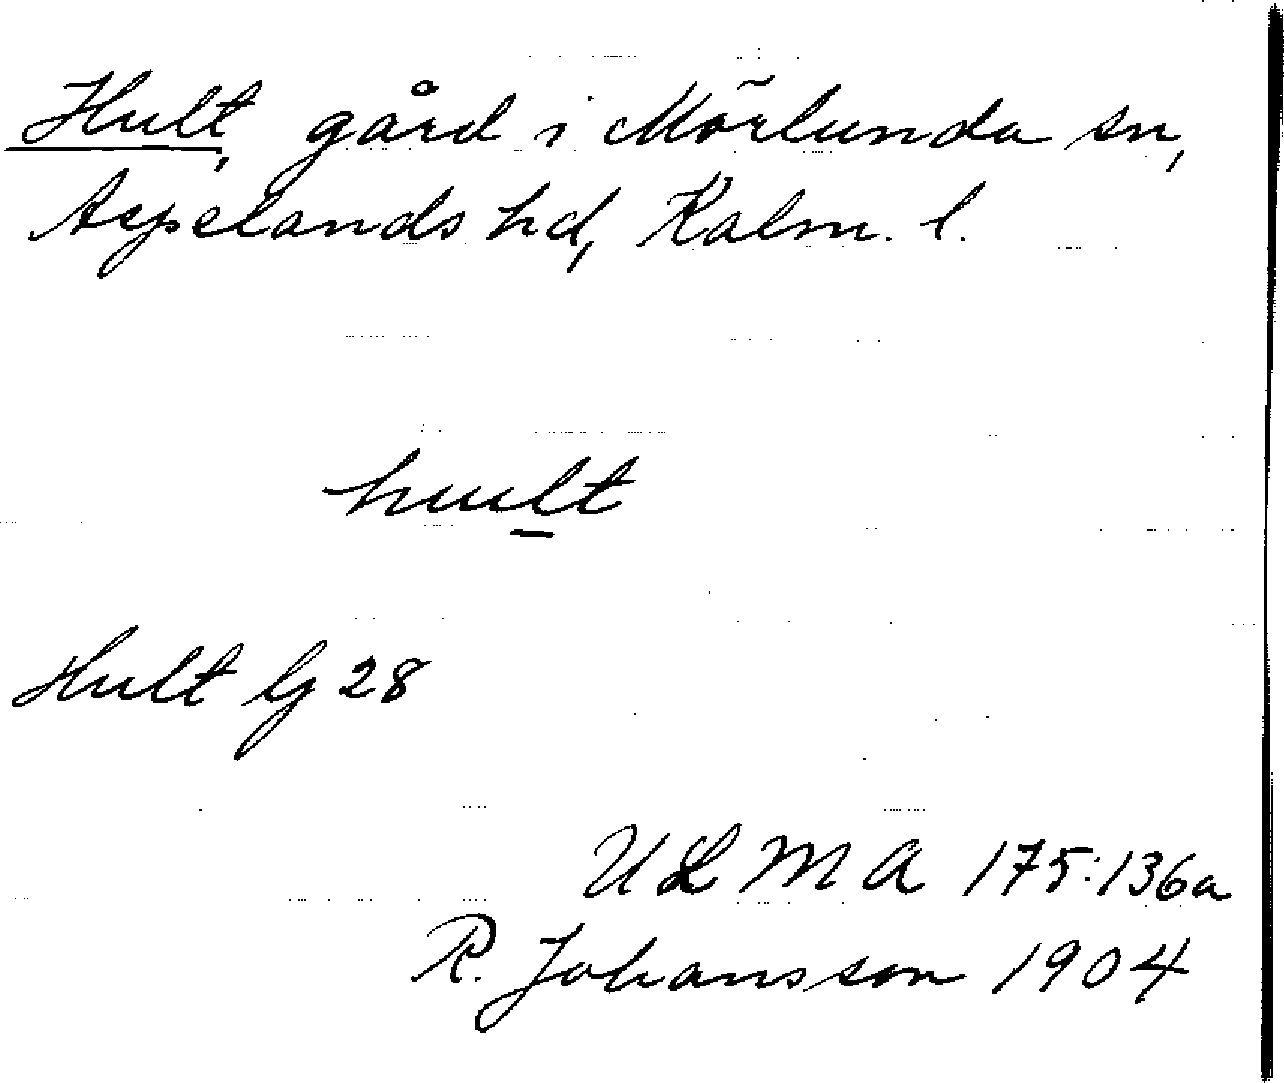 Hult, gård i Mörlunda sn,
Aspelands hd, Kalm. l.
hult
Hult Gj 28
ULMA 175:136a
R. Johansson 1904